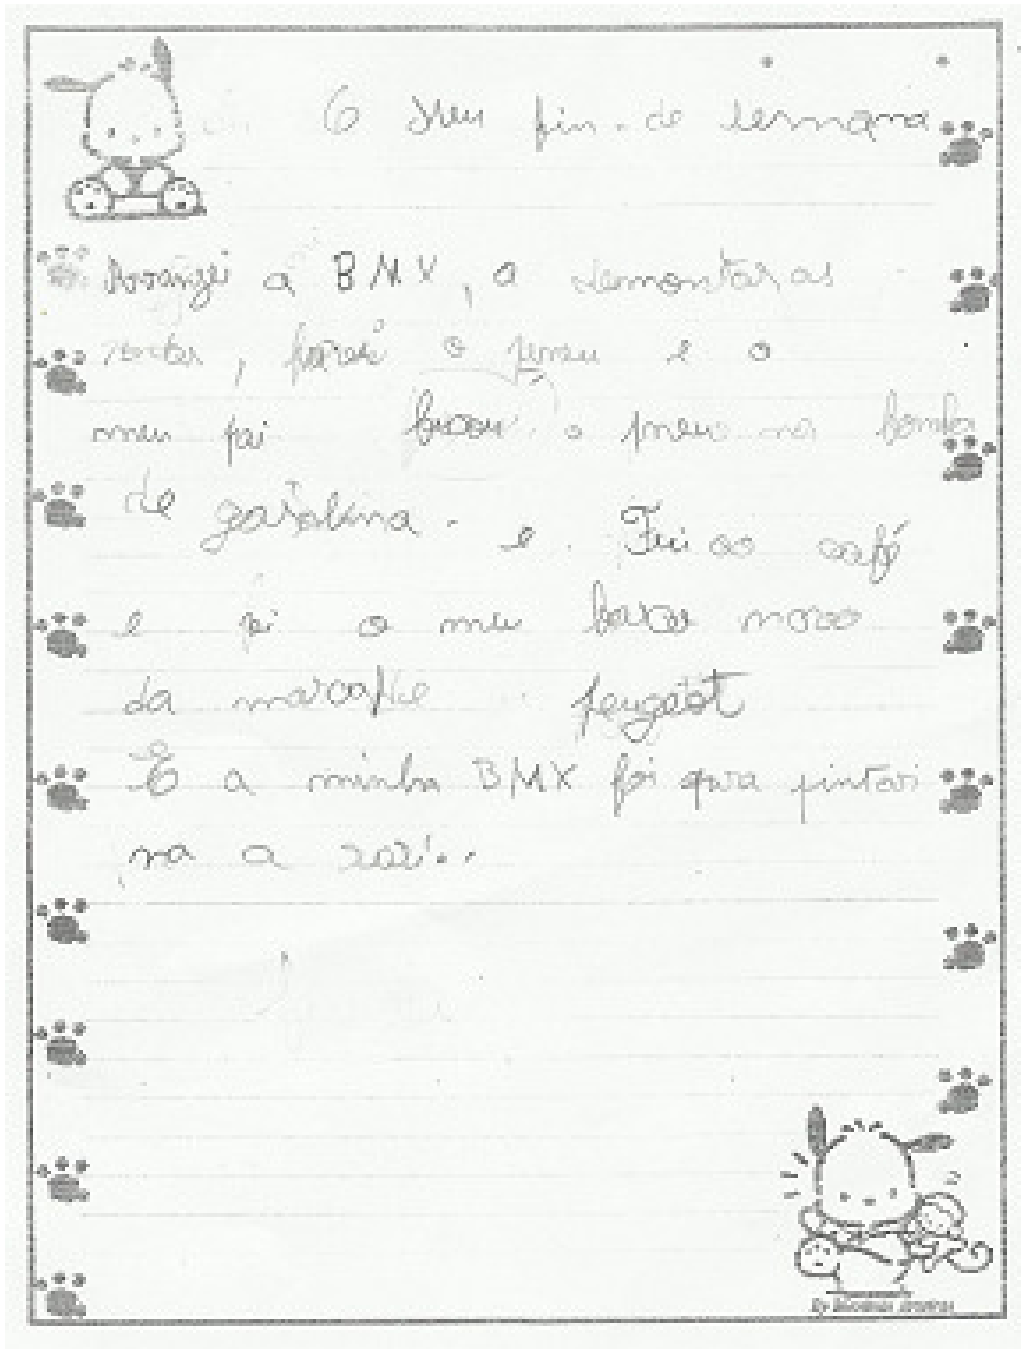 O meu fin-de semana
Arranjei a BMX, a demontar as
rodas, furei o pneu e o
meu pai o pneu na bomba
de gasolina. e. Fui ao café
e foi o meu novo
da marca peugeot
E a minha BMX foi para pintar
na a